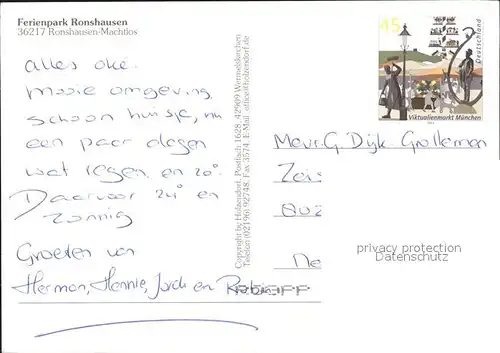 Ferienpark Ronshausen
36217 Ronshausen-Machtlos
alles oke.
mooie omgeving
schoon huisje, nu
een paar dagen
wat regen en 20°
Daarvoor 24° en
zonnig
Groeten van
Herman, Hennie, Jordi en Robin
Copyright by Holzendorf, Postfach 1628, 42909 Wermelskirchen
Telefon (02196) 92748, Fax 3574, E-Mail: office@holzendorf.de
45
Deutschland
Viktualienmarkt München
Mevr. G. Dijk. Grolleman
Zei
802
Ne
privacy protection
Datenschutz